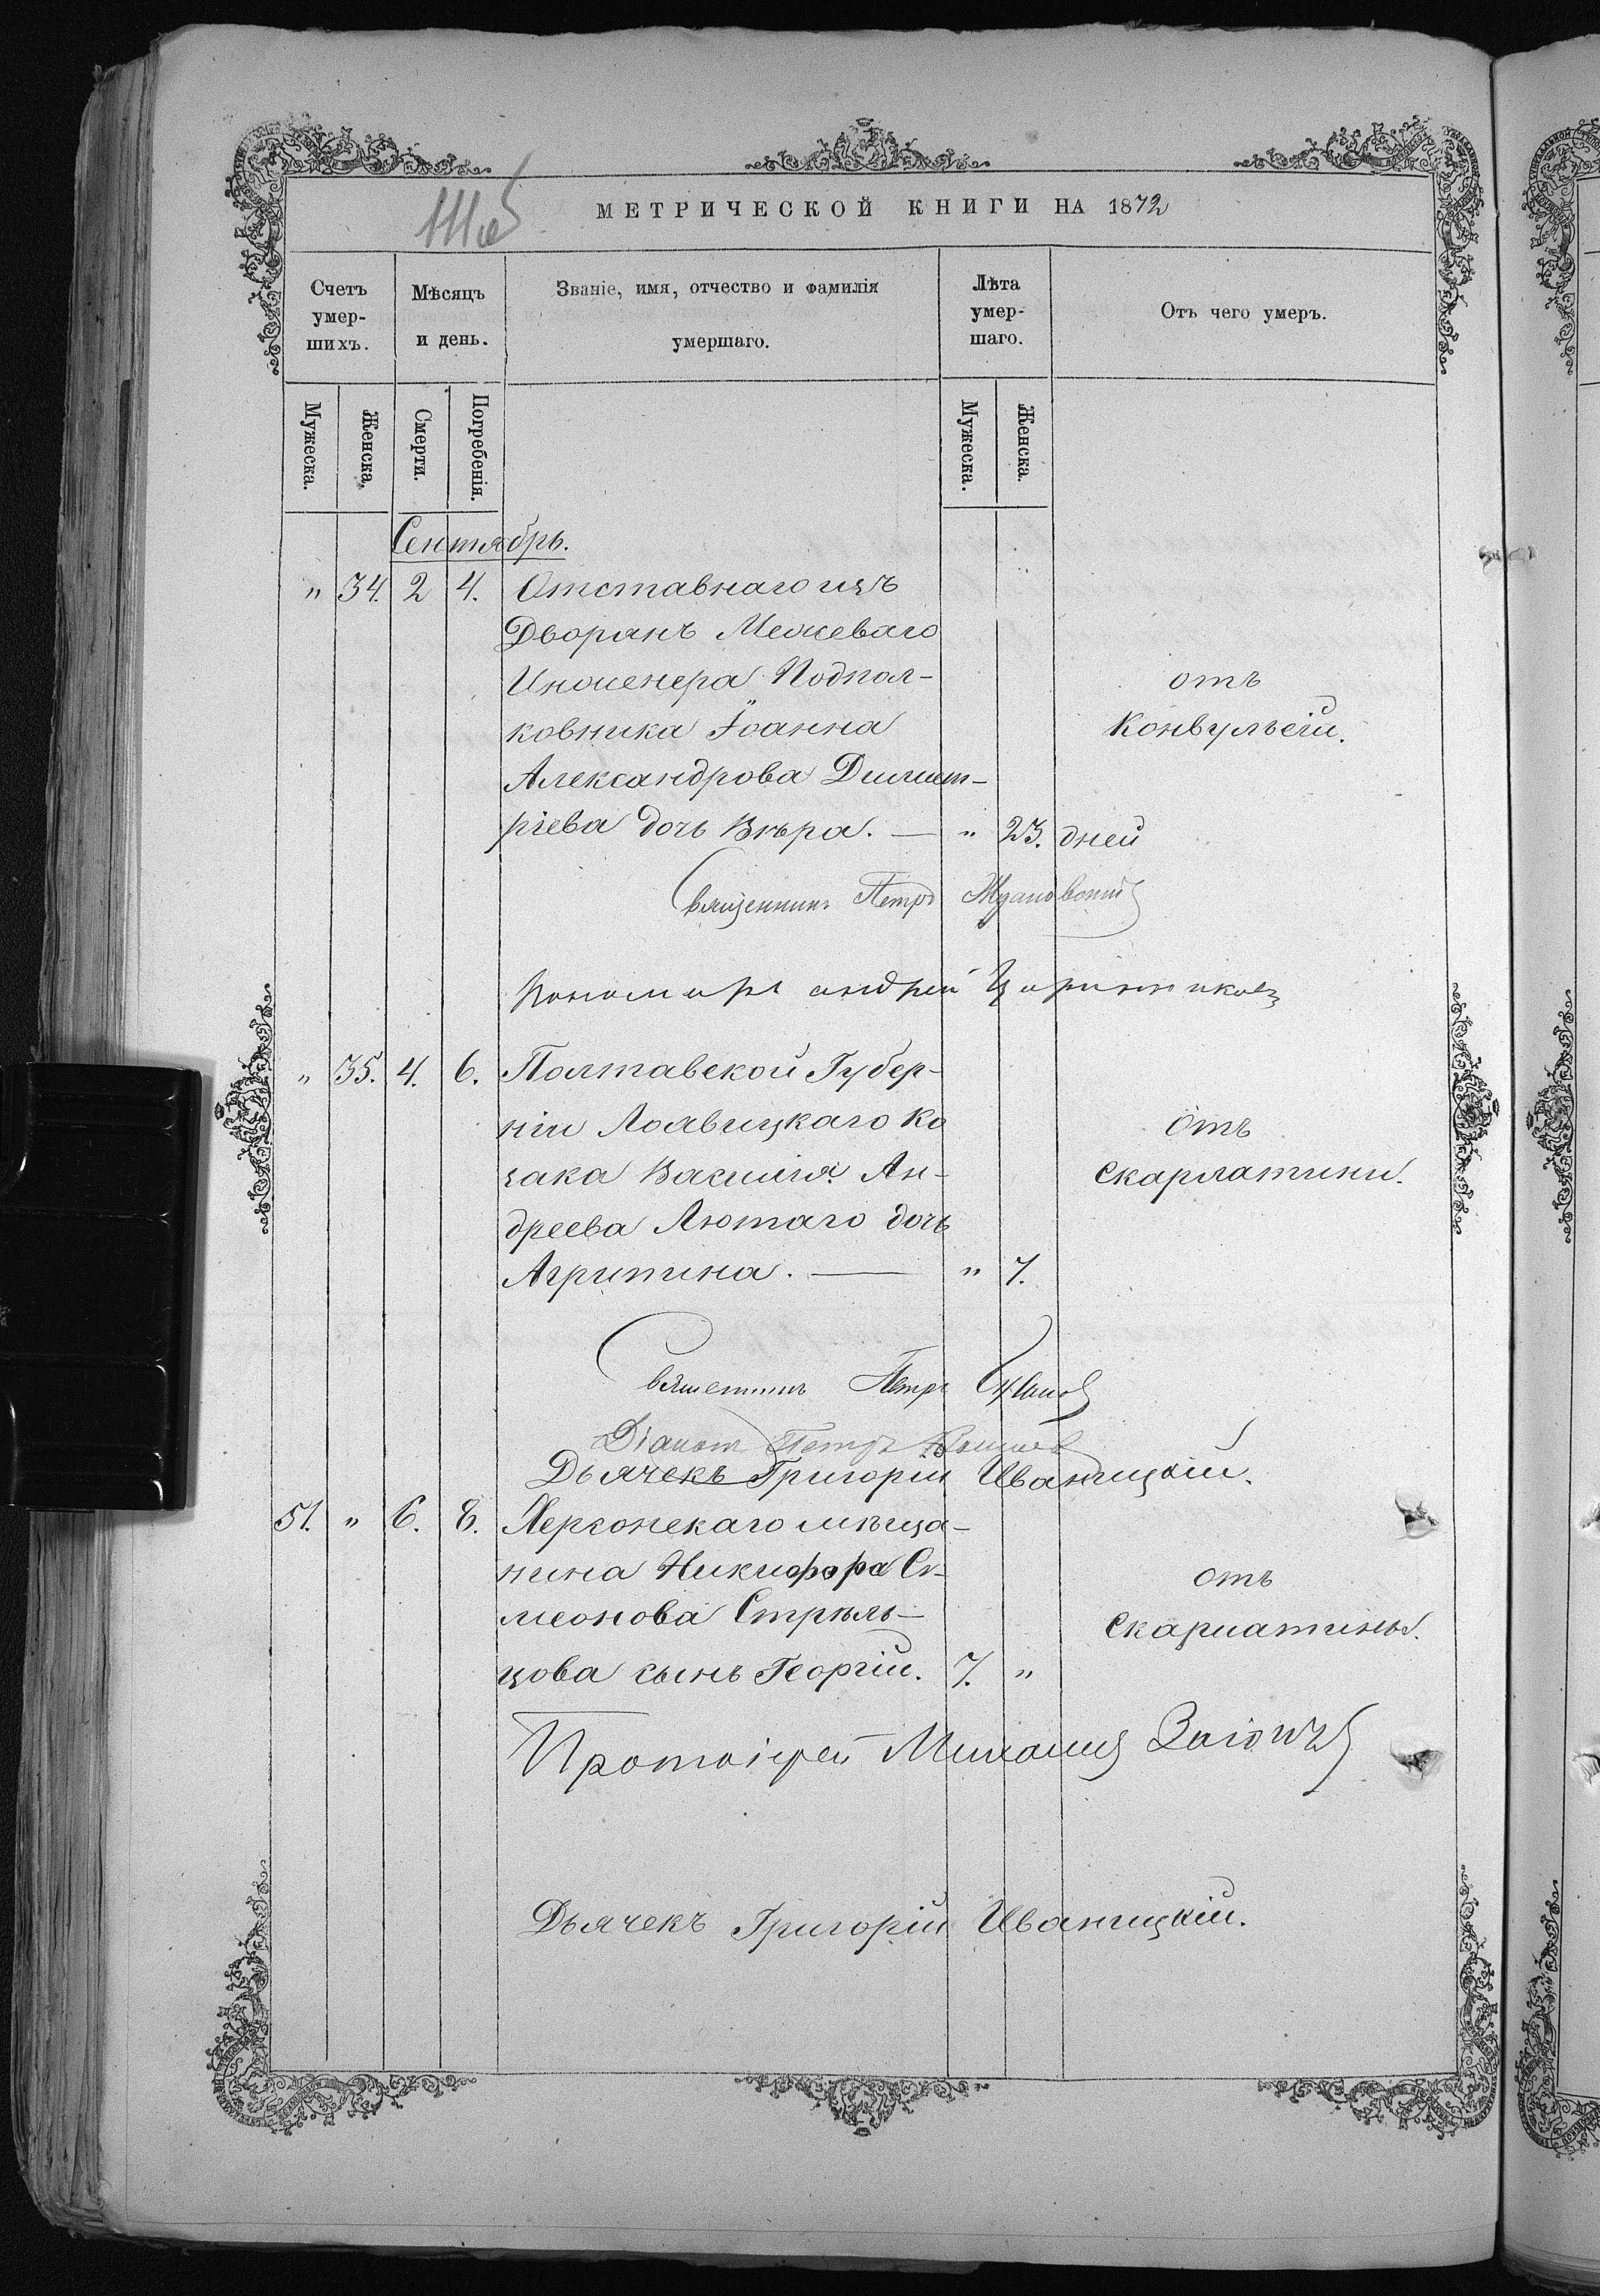 МЕТРИЧЕСКОЙ КНИГИ НА 1872
Счетъ умер-шихъ.
Мѣсяцъ и день.
Званіе, имя, отчество и фамилія умершаго.
Лѣта умер-шаго.
Отъ чего умеръ.
Мужеска. Женска. Смерти. Погребенія. Мужеска. Женска.
Сентябрь.
" 34. 2 4. Отставнаго изъ
Дворянъ Межеваго
Инженера Подпол- отъ
ковника Іоанна Конвульсіи.
Александрова Димит-
ріева дочь Вѣра. — " 23. дней
Священникъ Петръ
Пономарь Андрей
" 35. 4. 6. Полтавской Губер-
ніи Лохвицкаго Ко отъ
зака Василія Ан- Скарлатины.
дреева Лютаго дочь
Агрипина. — " 7.
Священникъ Петръ
Діаконъ Петръ
Дьячекъ Григорій Иваницкій.
51. " 6. 8. Херсонскаго мѣща-
нина Никифора Си- отъ
меонова Стрѣль- Скарлатины.
цова сынъ Георгій. 7. "
Протоіерей Михаилъ
Дьячекъ Григорій Иваницкій.